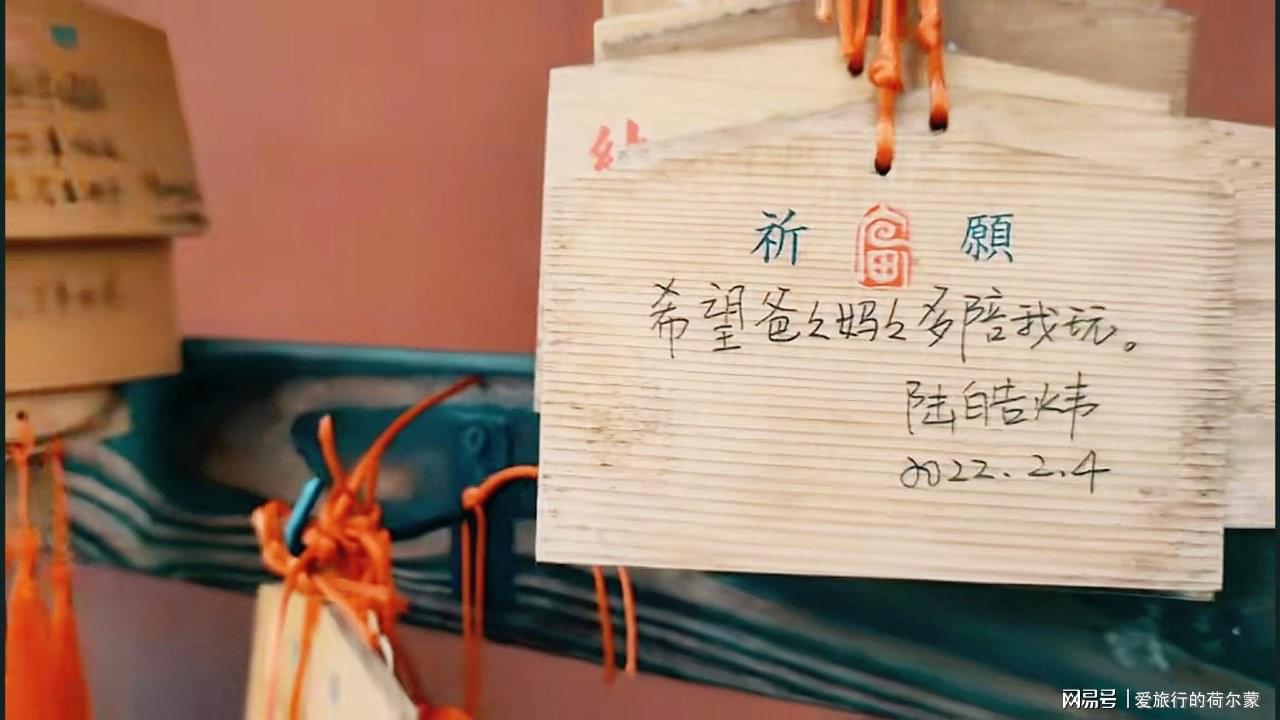 祈 願
希望爸々妈々多陪我玩。
陆皓炜
2022.2.4
网易号 | 爱旅行的荷尔蒙